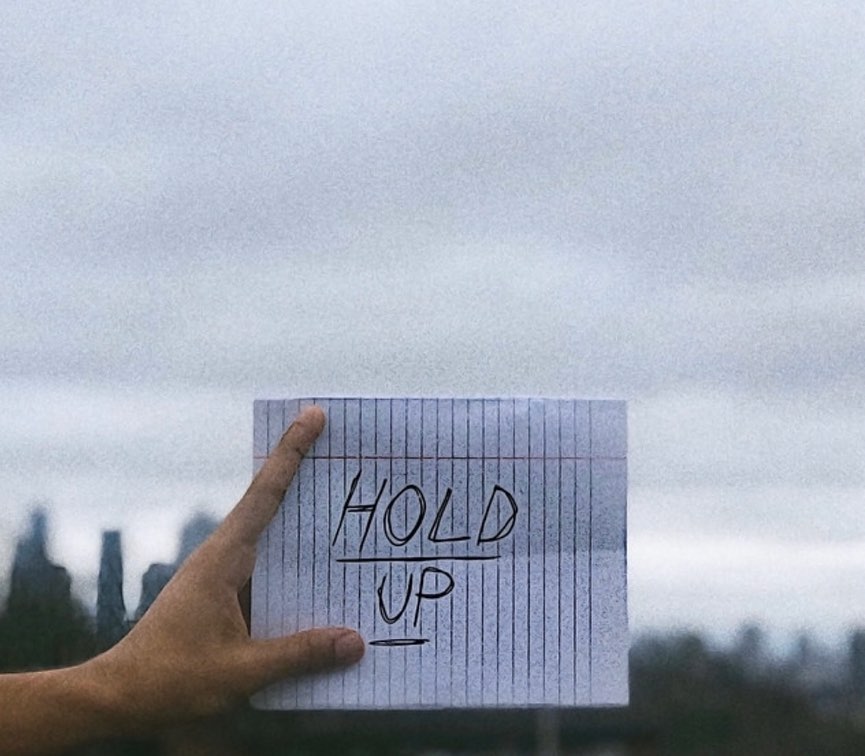 HOLD
UP